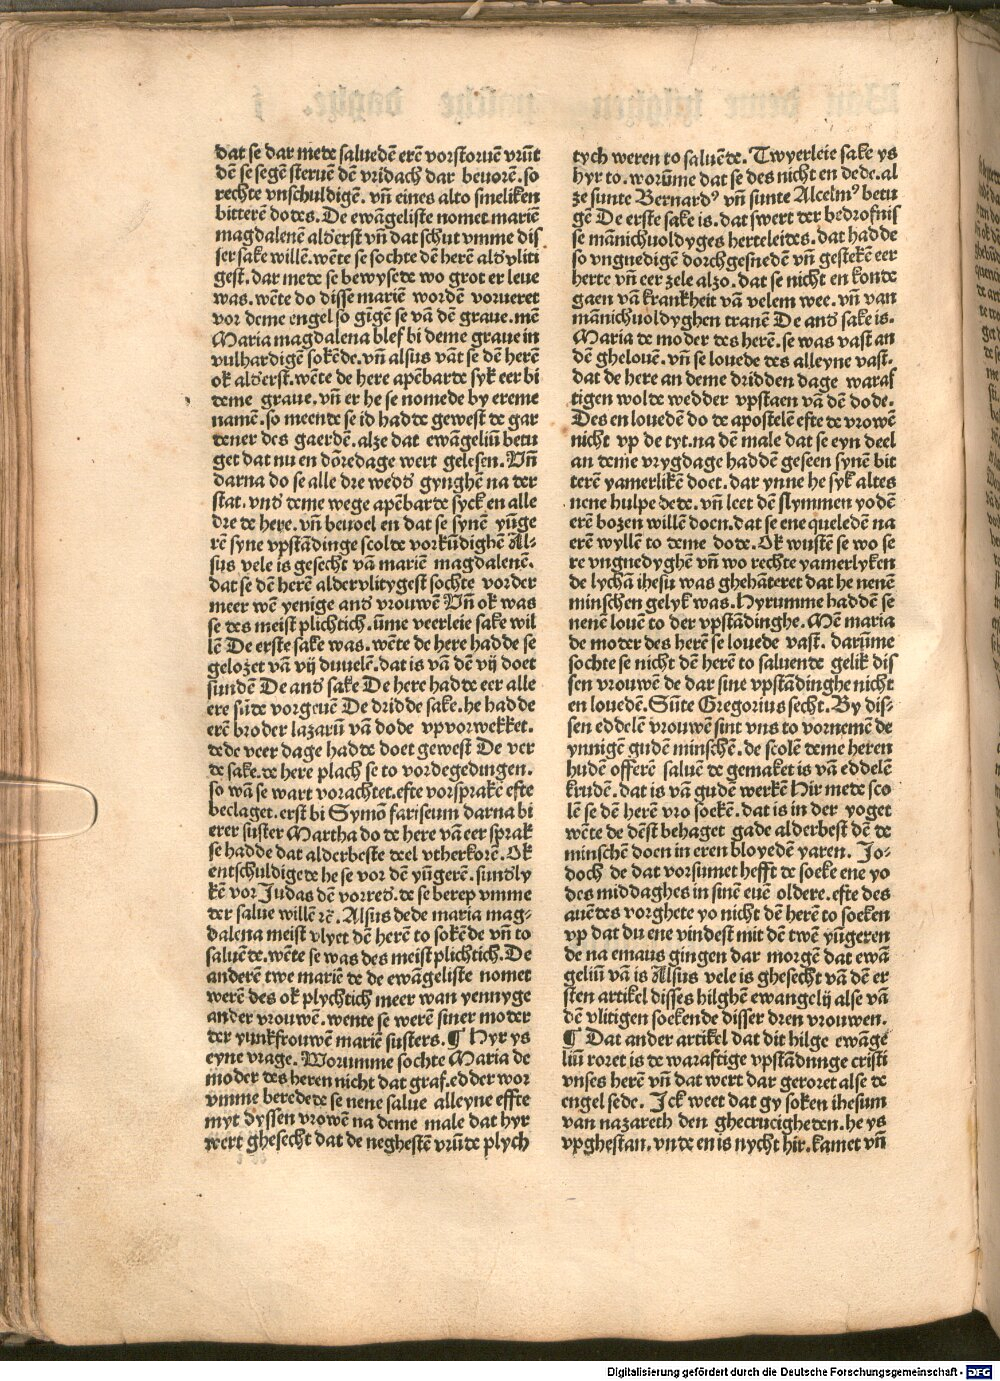 dat se dar mede salueden̄ erē vorstoruē vrūt
dē se segē steruē dē vridach dar beuorē. so
rechte vnschuldigē. vn̄ eines alto smeliken
bitterē dodes. De ewāgeliste nomet mariē
magdalenē alderst vn̄ dat schut vmme dis
ser sake willē. wēte se sochte dē herē aldvliti
gest. dar mede se bewysede wo grot er leue
was. wēte do disse mariē wordē vorueret
vor deme engel so gīgē se vā dē graue. mē
Maria magdalena blef bi deme graue in
vulhardigē sokēde. vn̄ alsus vāt se dē herē
ok alderst. wēte de here apēbarde syk eer bi
deme graue. vn̄ er he se nomede by ereme
namē. so meende se id hadde gewest de gar
dener des gaerdē. alze dat ewāgeliū betu
get dat nu en dōredage wert gelesen. Vn̄
darna do se alle dre weds gynghē na der
stat. vnd deme wege apēbarde syck en alle
dre de here. vn̄ beuoel en dat se synē yūge
rē syne vpstādinge scolde vorkūdighē Al⸗
sus vele is gesecht vā mariē magdalenē.
dat se dē herē aldervlitygest sochte vorder
meer wē yenige and vrouwē Vn̄ ok was
se des meist plichtich. ūme veerleie sake wil
lē De erste sake was. wēte de here hadde se
gelozet vā vij duuelē. dat is vā dē vij doet
sundē De and sake De here hadde eer alle
ere sūde vorgeuē De dridde sake. he hadde
erē broder lazarū vā dode vpvorwekket.
dede veer dage hadde doet gewest De ver
de sake. de here plach se to vordegedingen.
so wā se wart vorachtet. efte vorsprakē efte
beclaget. erst bi Symō fariseum darna bi
erer suster Martha do de here vā eer sprak
se hadde dat alderbeste deel vtherkorē. Ok
entschuldigede he se vor dē yūgerē. sundly
kē vor Judas dē vorred. de se berep vmme
der salue willē rē. Alsus dede maria mag⸗
dalena meist vlyet dē herē to sokēde vn̄ to
saluēde. wēte se was des meist plichtich. De
anderē twe mariē de de ewāgeliste nomet
werē des ok plychtich meer wan yennyge
ander vrouwē. wente se werē siner moder
der yunkfrouwē mariē susters. ¶ Hyr ys
eyne vrage. Worumme sochte Maria de
moder des heren nicht dat graf. edder wor
vmme beredede se nene salue alleyne effte
myt dyssen vrowē na deme male dat hyr
wert ghesecht dat de neghestē vrūde plych
tych weren to saluēde. Twyerleie sake ys
hyr to. worūme dat se des nicht en dede. al
ze sunte Bernardꝰ vn̄ sunte Alcelmꝰ betu
gē De erste sake is. dat swert der bedrofnis
se mānichuoldyges herteleides. dat hadde
so vngnedigē dorchgesnedē vn̄ gestekē eer
herte vn̄ eer zele alzo. dat se nicht en konde
gaen vā krankheit vā velem wee. vn̄ van
mānichuoldyghen tranē De and sake is.
Maria de moder des herē. se was vast an
dē ghelouē. vn̄ se louede des alleyne vast.
dat de here an deme dridden dage waraf
tigen wolde wedder vpstaen vā dē dode.
Des en louedē do de apostelē efte de vrowē
nicht vp de tyt. na dē male dat se eyn deel
an deme vrygdage haddē geseen synē bit
terē yamerlikē doet. dar ynne he syk altes
nene hulpe dede. vn̄ leet dē slymmen yodē
erē bozen willē doen. dat se ene queledē na
erē wyllē to deme dode. Ok wustē se wo se
re vngnedyghē vn̄ wo rechte yamerlyken
de lychā ihesu was ghehāteret dat he nenē
minschen gelyk was. Hyrumme haddē se
nenē louē to der vpstādinghe. Mē maria
de moder des herē se louede vast. darūme
sochte se nicht dē herē to saluende gelik dis
sen vrouwē de dar sine vpstādinghe nicht
en louedē. Sūte Gregorius secht. By dis⸗
sen eddelē vrouwē sint vns to vornemē de
ynnigē gudē minschē. de scolē deme heren
hudē offerē saluē de gemaket is vā eddelē
krudē. dat is vā gudē werkē Hir mede sco
lē se dē herē vro soekē. dat is in der yoget
wēte de dēst behaget gade alderbest dē de
minschē doen in eren bloyedē yaren. Jo⸗
doch de dat vorsumet hefft de soeke ene yo
des middaghes in sinē euē oldere. efte des
auēdes vorghete yo nicht dē herē to soeken
vp dat du ene vindest mit dē twē yūgeren
de na emaus gingen dar morgē dat ewā
geliū vā is Alsus vele is ghesecht vā dē er
sten artikel disses hilghē ewangelij alse vā
dē vlitigen soekende disser dren vrouwen.
¶ Dat ander artikel dat dit hilge ewāge
liū roret is de waraftige vpstādnnge cristi
vnses herē vn̄ dat wert dar geroret alse de
engel sede. Jck weet dat gy soken ihesum
van nazareth den ghecrucigheden. he ys
vpghestan. vnde en is nycht hir. kamet vn̄
Digitalisierung gefördert durch die Deutsche Forschungsgemeinschaft - DFG